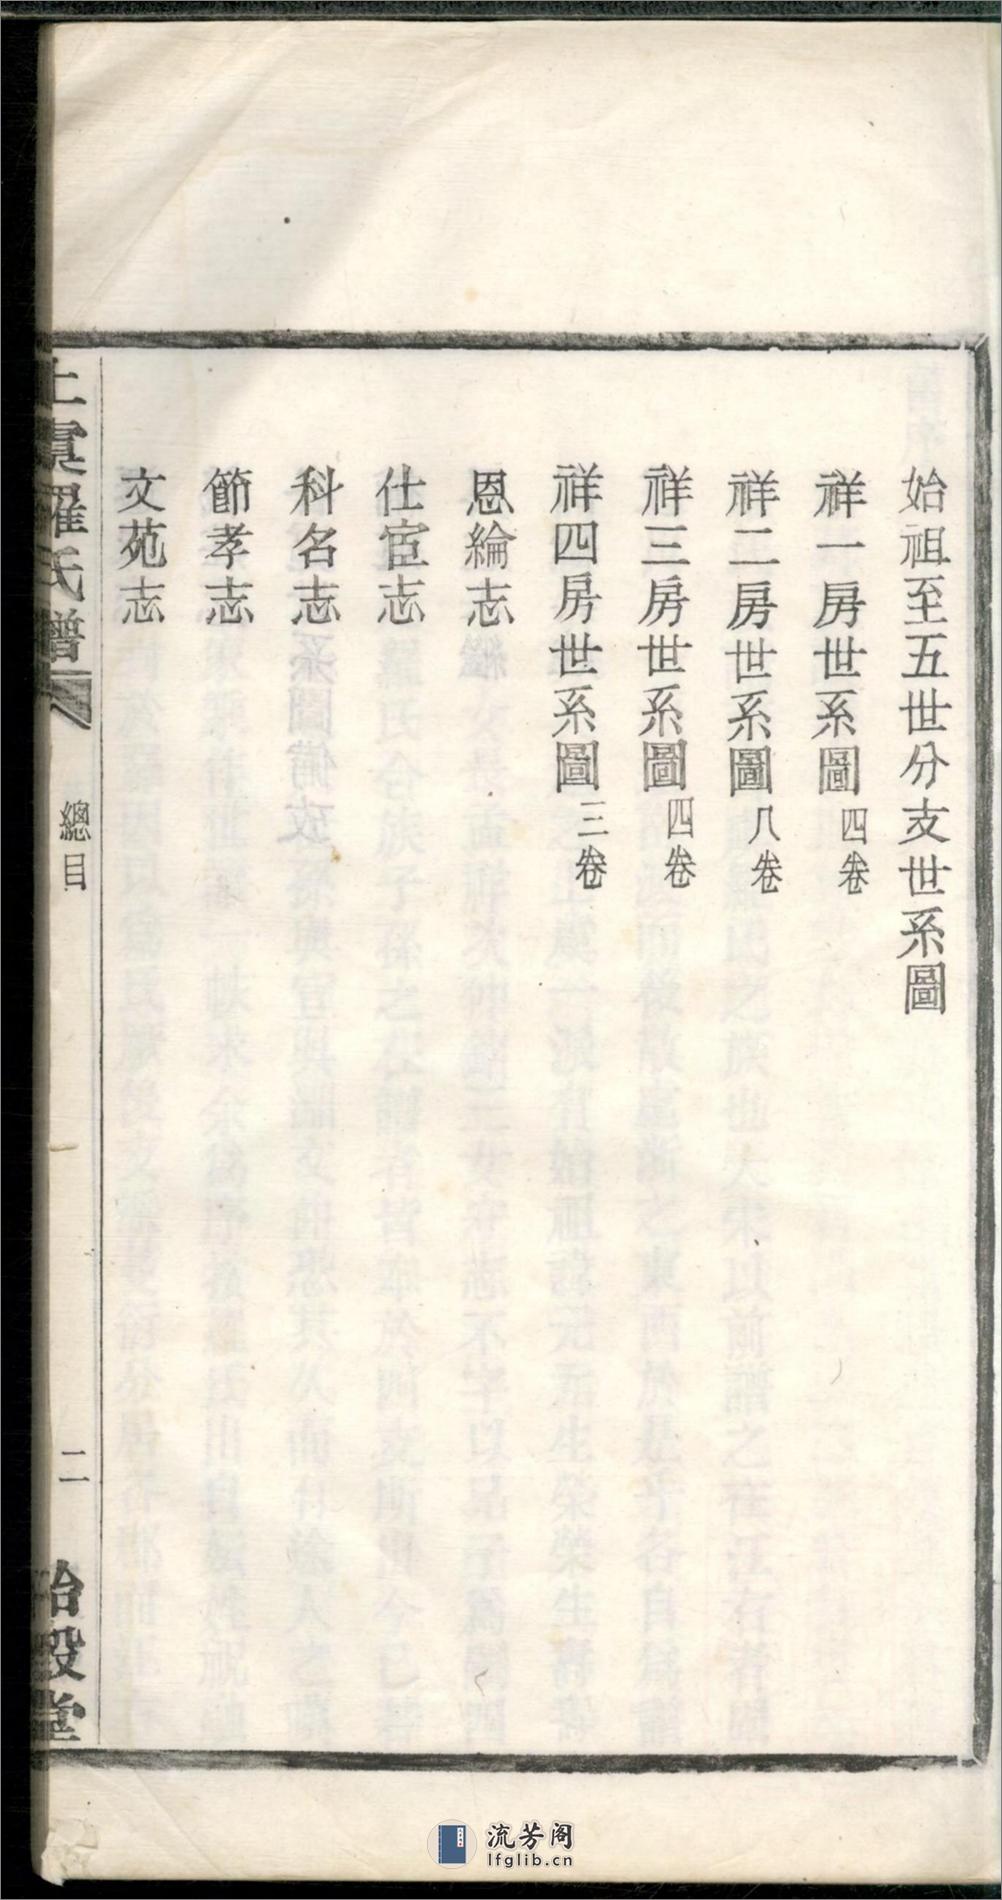 始祖至五世分支世系圖
祥一房世系圖 四卷
祥二房世系圖 八卷
祥三房世系圖 四卷
祥四房世系圖 三卷
恩綸志
仕宦志
科名志
節孝志
文苑志
上虞羅氏譜
總目
二
詒穀堂
流芳阁
lfglib.cn